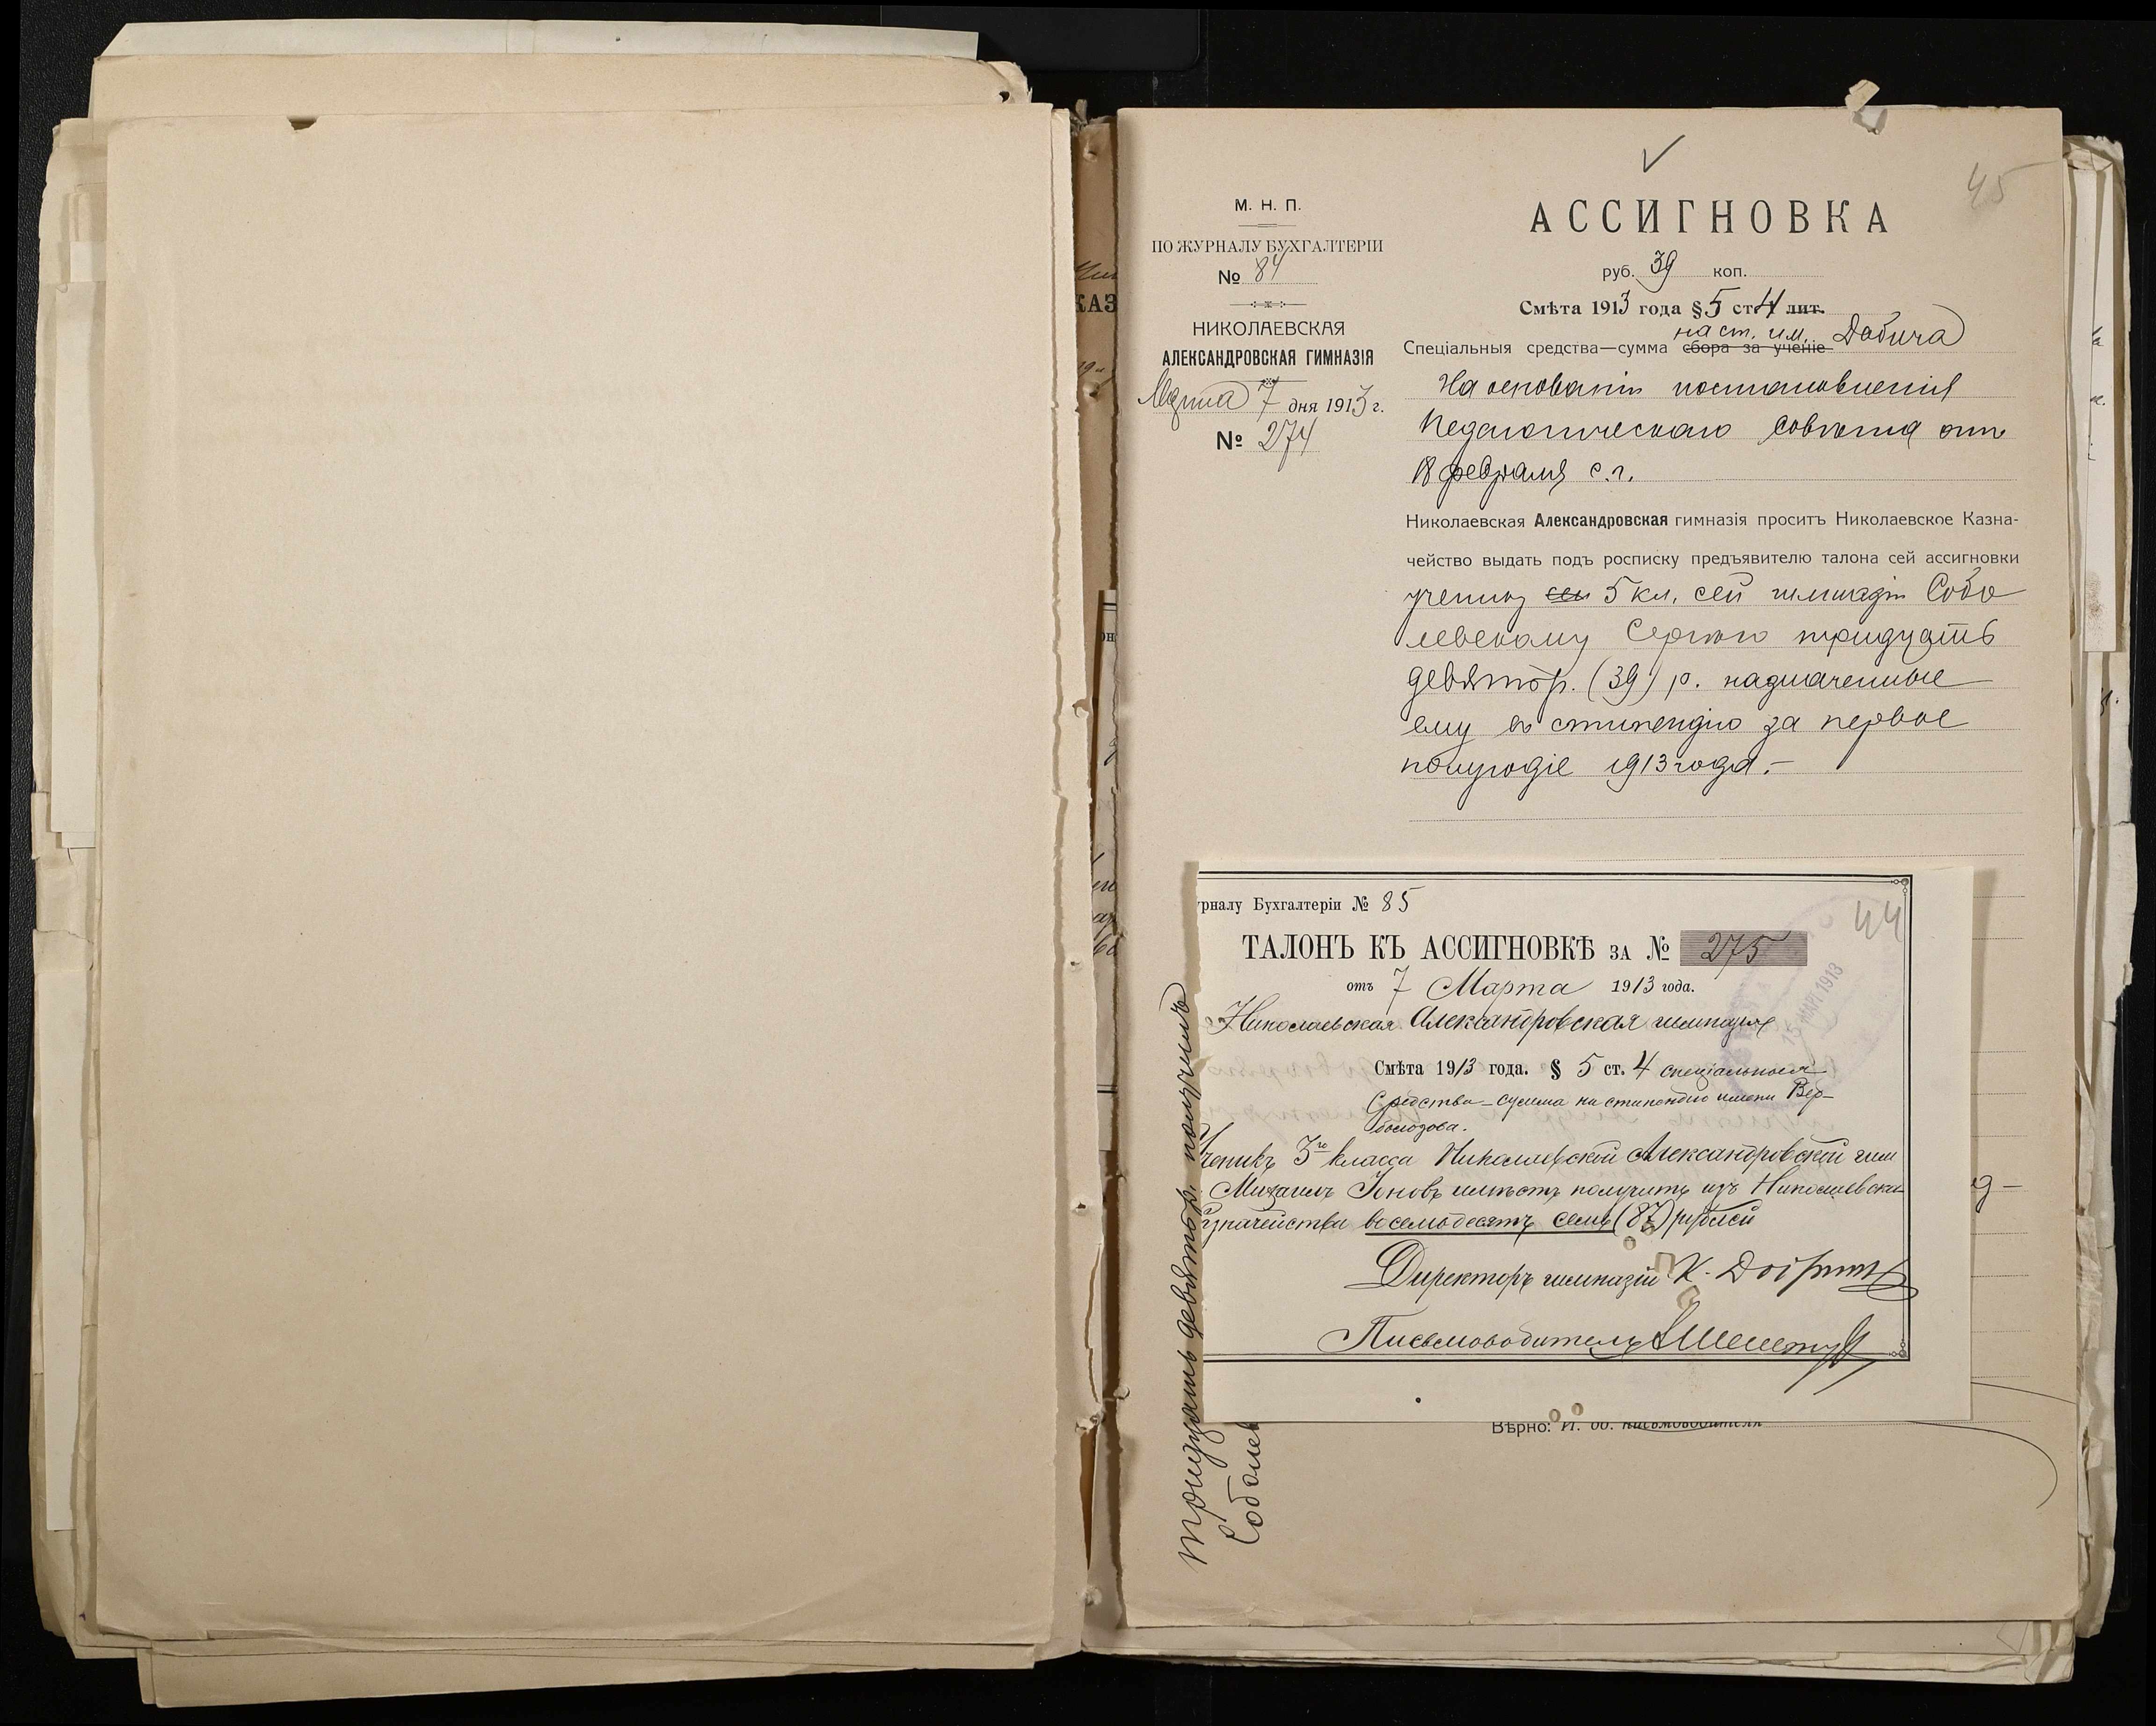 45
М. Н. П.
ПО ЖУРНАЛУ БУХГАЛТЕРІИ
№ 84
НИКОЛАЕВСКАЯ
АЛЕКСАНДРОВСКАЯ ГИМНАЗІЯ
Марта 7 дня 1913 г.
№ 274
АССИГНОВКА
руб. 39 коп.
Смѣта 1913 года § 5 ст. 4 лит.
на ст. им. Дабича
Спеціальныя средства—сумма сбора за ученіе
На основаніи постановленія
Педагогическаго Совѣта отъ
18 февраля с. г.
Николаевская Александровская гимназія проситъ Николаевское Казна-
чейство выдать подъ росписку предъявителю талона сей ассигновки
ученику сей 5 кл. сей гимназіи Собо
левскому Сергѣю тридцать
девять р. (39) р. назначенные
ему въ стипендію за первое
полугодіе 1913 года.-
урналу Бухгалтеріи № 85
44
ТАЛОНЪ КЪ АССИГНОВКѢ ЗА № 275
отъ 7 Марта 1913 года.
15 МАР 1913
Николаевская Александровская гимназія
Смѣта 1913 года. § 5 ст. 4 спеціальныя
Средства – сумма на стипендію имени Вер-
блюзова.
Ученикъ 3го класса Николаевской Александровской гим
Михаилъ Іоновъ имѣетъ получить изъ Николаевска
значейства восемьдесятъ семь (87) рублей
Директоръ гимназіи К.
Письмоводитель
Вѣрно: И. об. письмоводителя
тридцать девять р. получилъ
Соболев